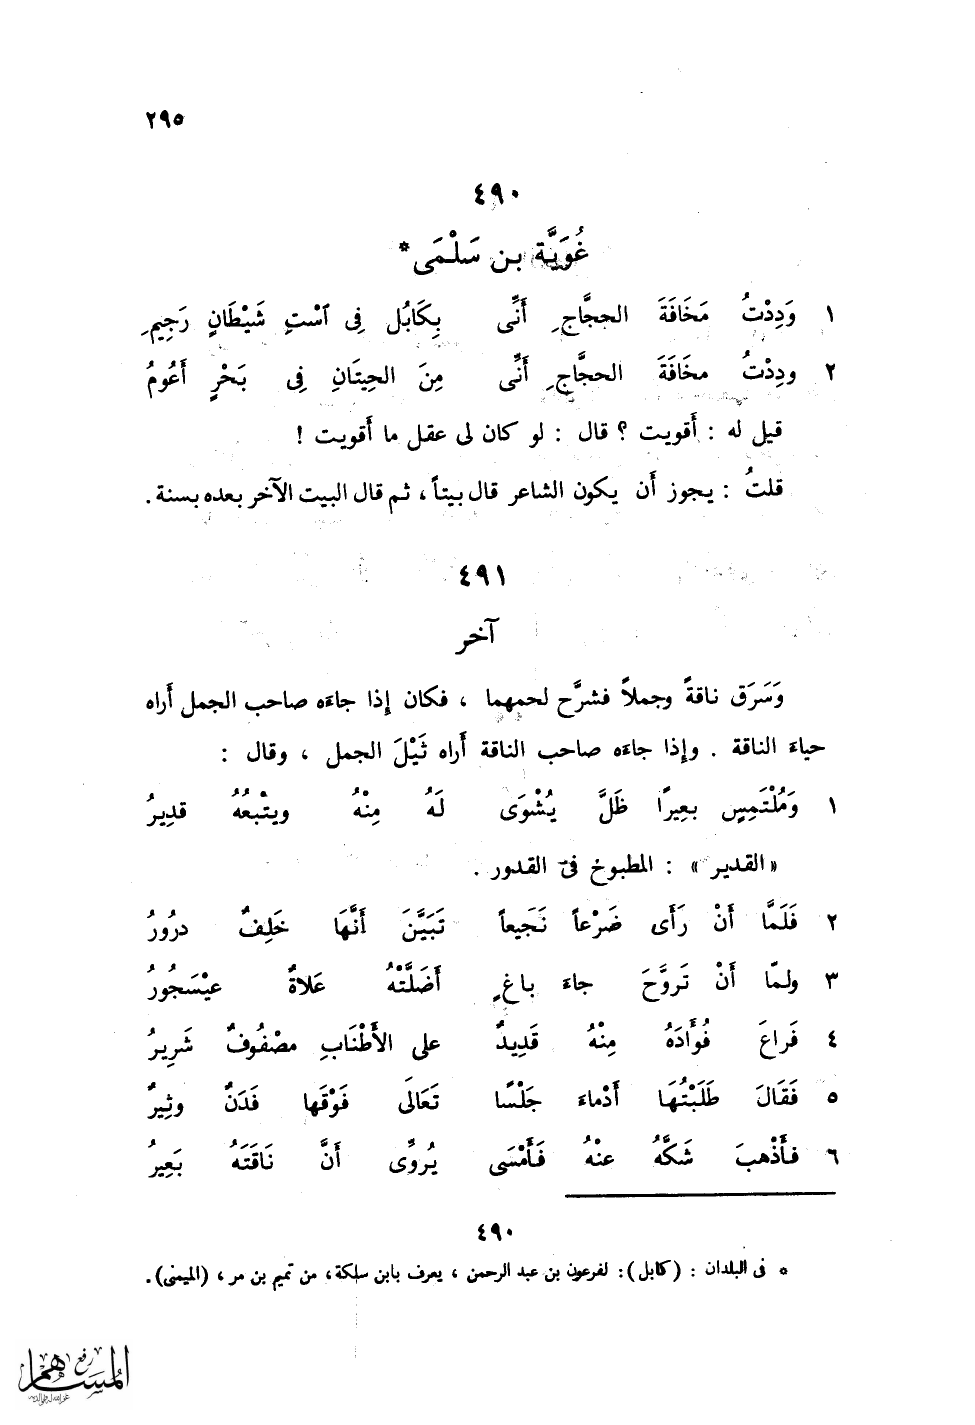 ٢٩٥
٤٩٠
غُوَيَّة بن سَلْمَى*
١ وَدِدْتُ مَخَافَةَ الحجَّاجِ أَنِّى بِكَابُل فِى ٱسْتِ شَيْطَانٍ رَجِيمِ
٢ ودِدْتُ مخَافَةَ الحجَّاجِ أَنِّى مِنَ الحِيتَانِ فِى بَحْرٍ أَعُومُ
قيل له : أَقويت ؟ قال : لو كان لى عقل ما أَقويت !
قلتُ : يجوز أَن يكون الشاعر قال بيتاً ، ثم قال البيت الآخر بعده بسنة .
٤٩١
آخر
وَسَرَق ناقةً وجملاً فشرَّح لحمهما ، فكان إِذا جاءَه صاحب الجمل أَراه
حياءَ الناقة . وإِذا جاءَه صاحب الناقة أَراه ثَيْلَ الجمل ، وقال :
١ وَمُلْتَمِسٍ بعِيرًا ظَلَّ يُشْوَى لَهُ مِنْهُ ويتْبعُهُ قدِيرُ
« القدير » : المطبوخ فى القدور .
٢ فَلَمَّا أَنْ رَأَى ضَرْعاً نَجَيعاً تَبَيَّنَ أَنَّهَا خَلِفٌ درُورُ
٣ ولمّا أَنْ تَروَّحَ جاءَ باغٍ أَضَلَّتْهُ عَلاةٌ عيْسَجُورُ
٤ فَراعَ فُؤَادَهُ مِنْهُ قَدِيدٌ على الأَطْنَابِ مصْفُوفٌ شَرِيرُ
٥ فَقَالَ طَلَبْتُهَا أَدْماءَ جَلْسًا تَعَالَى فَوْقَها فَدَنٌ وثِيرُ
٦ فأَذْهبَ شَكَّهُ عنْهُ فَأَمْسَى يُروِّى أَنَّ نَاقَتَهُ بَعِيرُ
٤٩٠
* فى البلدان : (كابل) : لفرعون بن عبد الرحمن ، يعرف بابن سلكة، من تميم بن مر ، (الميمنى) .